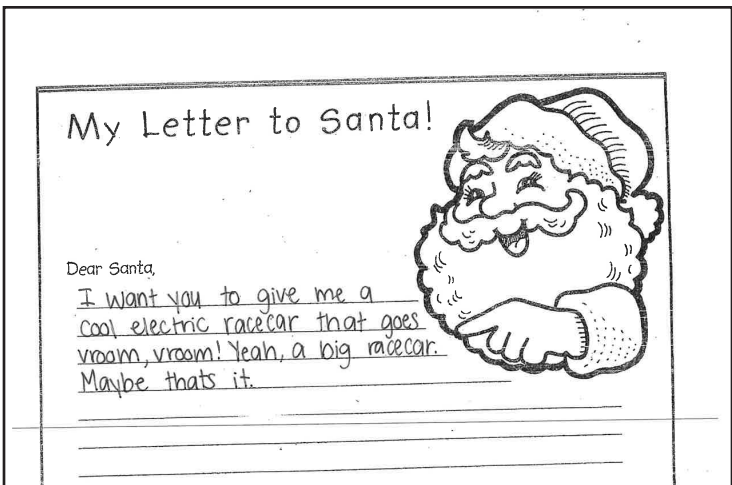 My Letter to Santa!
Dear Santa,
I want you to give me a
cool electric racecar that goes
vroom, vroom! Yeah, a big racecar.
Maybe thats it.